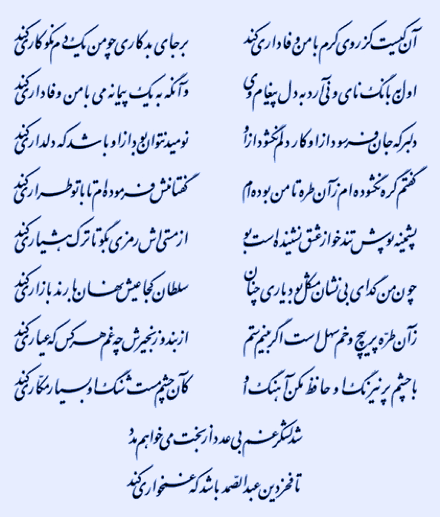 آن کیست کز روی کرم با من وفاداری کند بر جای بدکاری چو من یک دم نکوکاری کند
اول به بانگ نای و نی آرد به دل پیغام وی وآنگه به یک پیمانه می با من وفاداری کند
دلبر که جان فرسود از او کار دلم نگشود از او نومید نتوان بود از او باشد که دلداری کند
گفتم گره نگشوده‌ام زآن طره تا من بوده‌ام گفتا منش فرموده‌ام تا با تو طراری کند
پشمینه‌پوش تندخو از عشق نشنیده است بو از مستی‌اش رمزی بگو تا ترک هشیاری کند
چون من گدای بی‌نشان مشکل بود یاری چنان سلطان کجا عیش نهان با رند بازاری کند
زآن طرّه پر پیچ و خم سهل است اگر بینم ستم از بند و زنجیرش چه غم هر کس که عیاری کند
با چشم پر نیرنگ او حافظ مکن آهنگ او کآن چشم مست شنگ او بسیار مکّاری کند
شد لشکر غم بی عدد از بخت می‌خواهم مدد
تا فخر دین عبدالصّمد باشد که غمخواری کند